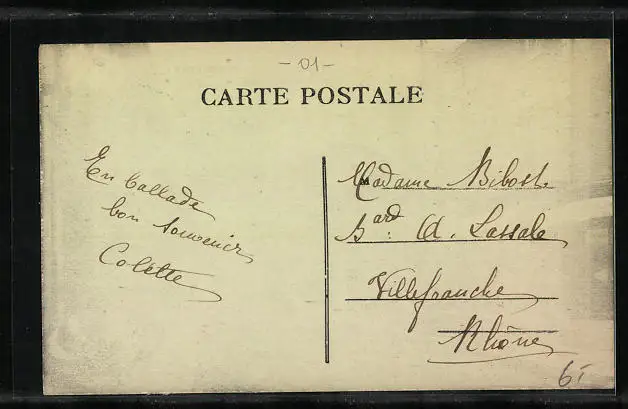 - 01 -
CARTE POSTALE
En ballade
bon souvenir
Colette
Madame Bibost
Bard : A. Lassale
Villefranche
Rhône